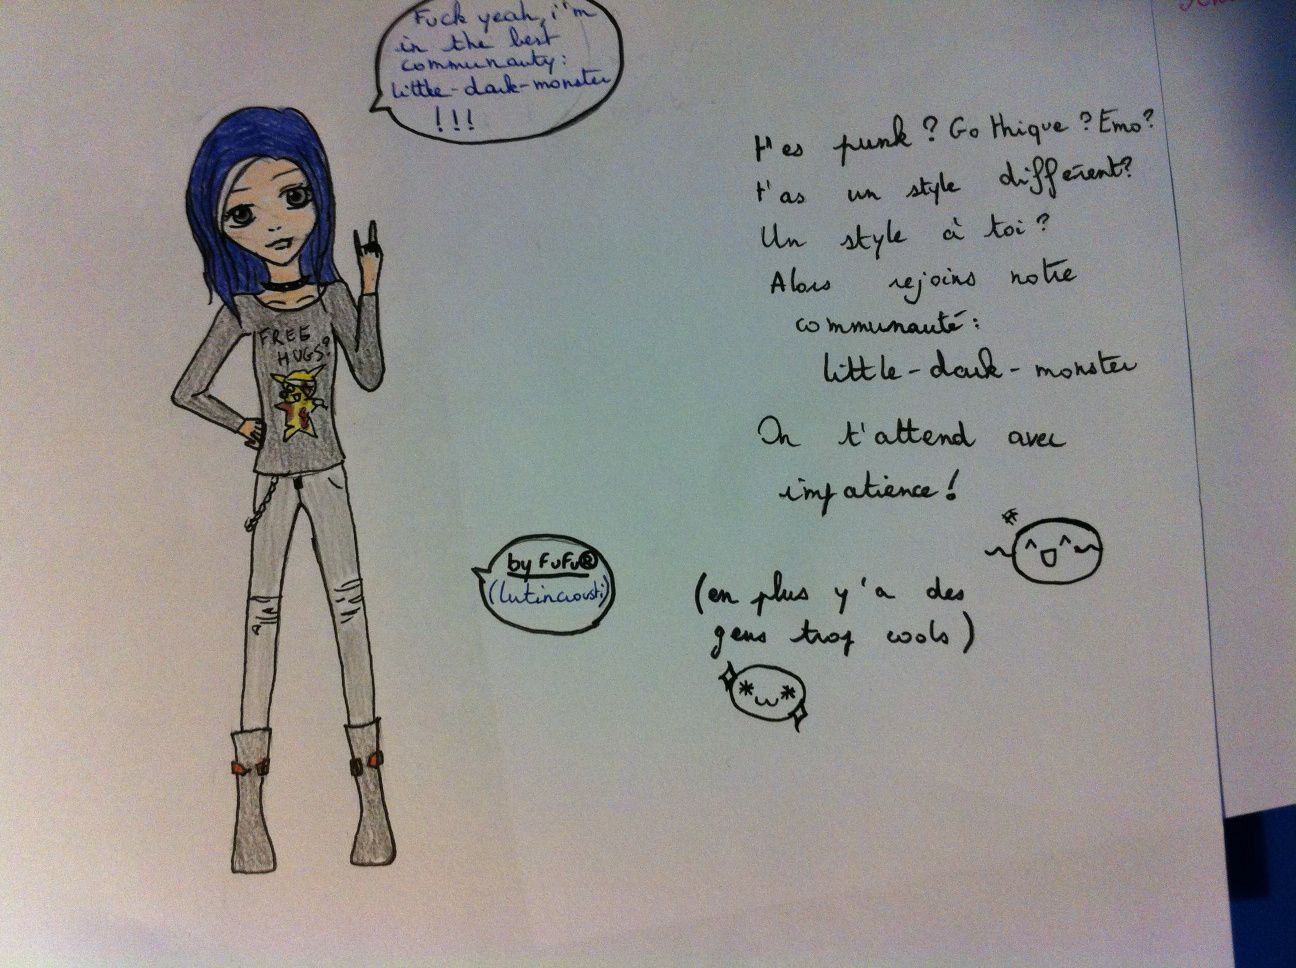 Fuck yeah, i'm
in the best
communauty:
little-dark-monster
!!!
FREE
HUGS?
t'es punk? Gothique? Emo?
t'as un style différent?
Un style à toi?
Alors rejoins notre
communauté:
little-dark-monster
On t'attend avec
impatience!
by FuFu®
(lutincrousti)
(en plus y'a des
gens trop cools)